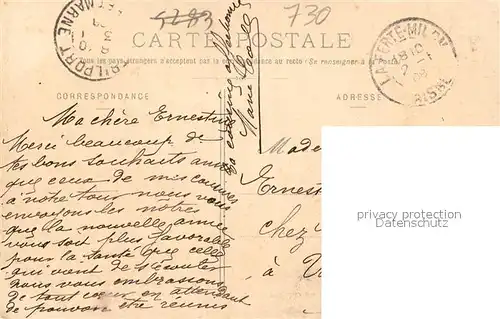 5283
730
CARTE POSTALE
Tous les pays étrangers n'acceptent pas la correspondance au recto (Se renseigner à la Poste)
CORRESPONDANCE
ADRESSE
TRILPORT
ET MARNE
LA FERTE-MILON
AISNE
Ma chère Ernestine
Merci beaucoup de
tes bons souhaits ainsi
que ceux de mes cousines
à notre tour nous vous
envoyons les nôtres
que la nouvelle année
vous soit plus favorable
pour la santé que celle
qui vient de s'écouler
Nous vous embrassons
de tout cœur en attendant
de pouvoir être réunis
Ta cousine
Made
Ernest
chez
à
privater Vermerk
private annotation